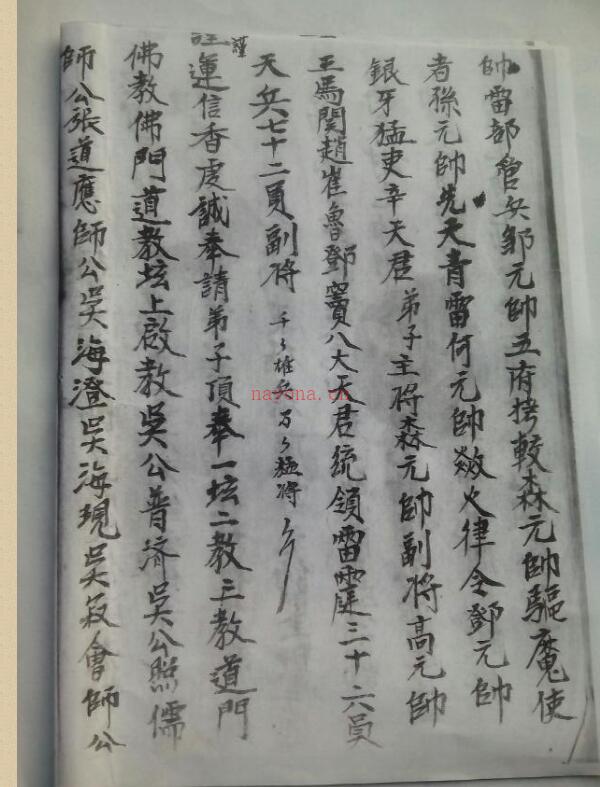 帥雷部管兵邹元帥五府㧯較森元帥驅魔使
者孫元帥先天青雷何元帥燄火律令鄧元帥
銀牙猛吏辛天君 弟子主將森元帥副將高元帥
王馬関趙崔魯鄧竇八大天君統領雷霆三十六員
天兵七十二員副将 千々雄兵万々猛將
謹運信香虔誠奉請弟子頂奉一坛二教三教道門
佛教佛門道教坛上啟教吳公普济吳公熙儒
師公張道應師公吴海澄吴海現吴㝡會師公
nayona.cn